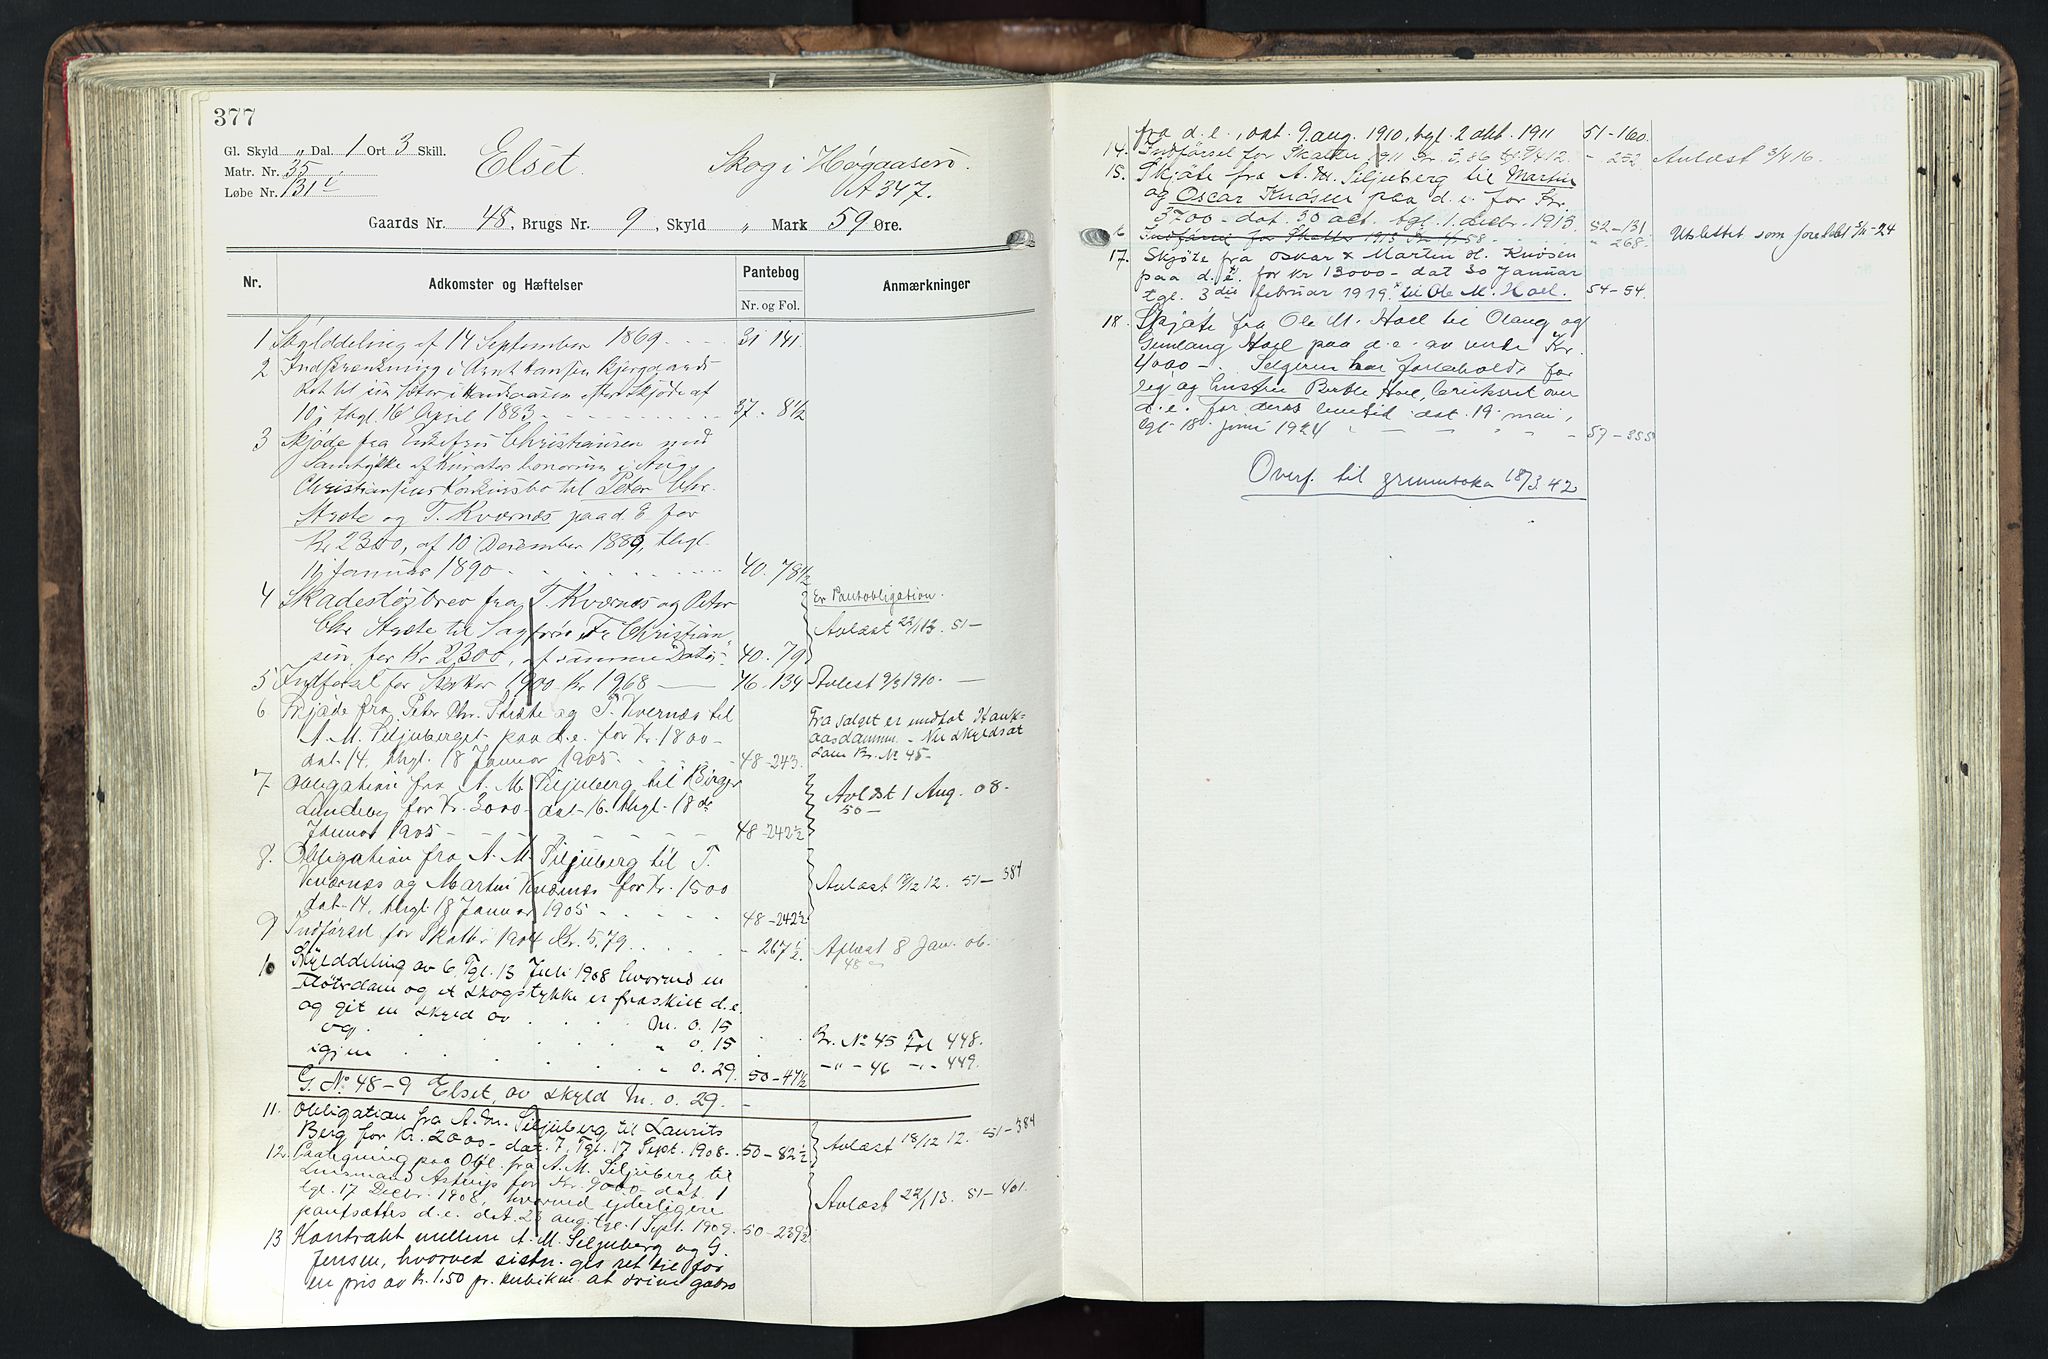 377
Gl. Skyld „ Dal. 1 Ort 3 Skill.
Matr. Nr. 35
Løbe Nr. 131 c
Elset. Skog i Høgaasen
A 347.
Gaards Nr. 48, Brugs Nr. 9, Skyld „ Mark 59 Øre.
Nr. Adkomster og Hæftelser Pantebog Anmærkninger
Nr. og Fol.
1 Skylddeling af 14 September 1869 31 141
2 Indskrænkning i Arnt Hansen Kjergaards
Ret til
10, thgl. 16 April 1883 37 - 8 1/2
3 Skjøde fra Enkefru Christiansen med
Samtykke af Kurator bonorum i Aug.
Christiansens Konkursbo til Peter Chr.
Stræte og T. Kværnæs paa d. E for
Kr 2300, af 10 December 1889, thgl.
11 Januar 1890 40. 78 1/2
4 Skadesløsbrev fra T. Kværnæs og Peter Er Pantobligation.
Chr Stræte til Sagfører Fr. Christian- Avlæst 22/1 13. 51 -
sen for Kr 2300, af samme Dato 40. 79
5 Indførsel for Skatter 1900 Kr 19.68 46. 134 Avlæst 9/3 1910. —
6 Skjøde fra Peter Chr. Stræte og T. Kvernæs til Fra salget er undtat Hauk-
A. M. Siljuberget paa d. e. for Kr. 1800 - aasdammen - Nu skyldsat
dat. 14. thgl. 18 Januar 1905 - 48 - 243. som Br. No 45 -
7 Obligation fra A. M. Siljuberg til Birger
Lundeby for Kr. 3000 - dat. 16. thgl. 18de Avlæst 1 Aug. 08.
50 -
Januar 1905 - 48 - 242 1/2
8. Obligation fra A. M. Siljuberg til T.
Kværnæs og Martin Kværnæs for Kr. 1500 Avlæst 18/12 12. 51 - 384
dat. 14. thgl. 18 Januar 1905 48 - 242 1/2
9 Indførsel for Skatter 1904 Kr. 5.79 - 267 1/2. Aflæst 8 Jan. 06.
48 -
10 Skylddeling av 6. Tgl. 13 Juli 1908 hvorved en
Fløterdam og et skogstykke er fraskilt d.e.
og git en skyld av M. 0. 15
og „ 0. 15 Br. No 45 Fol 448.
igjen „ 0. 29. 50 - 47 1/2 -„- 46 -„- 449.
G. No 48 - 9 Elset, av skyld M. 0. 29. -
11. Obligation fra A. M. Siljuberg til Laurits
Berg for Kr. 2000 - dat. 7. Tgl. 17 Sept. 1908. 50 - 82 1/2 Avlæst 18/12 12. 51 - 384
12. Paategning paa Obl. fra A. M. Siljuberg til
Lensmand Astrup for Kr. 9000 dat. 1
tgl. 17 Decbr. 1908, hvorved yderligere Avlæst 22/1 13. 51 - 401.
pantsættes d.e. dat. 23 aug. tgl. 1 Sept. 1909. 50 - 239 1/2
13 Kontrakt mellem A. M. Siljuberg og G.
Jensen, hvorved sistn. gis ret til for
en pris av Kr. 1.50 pr. kubikm. at drive gabro
fra d. e., dat. 9. aug. 1910, tgl. 2 okt. 1911 51 - 160.
14. Indførsel for Skatter 1911 Kr. 5.86 tgl 9/4 12. - 252 Avlæst 3/4 16.
15. Skjøte fra A. M. Siljuberg til Martin
og Oscar Knøsen paa d. e. for Kr.
3700 - dat. 30 okt. tgl. 1. decbr. 1913 52 - 131
16 Indførsel for Skatter 1913 Kr 4.58 „ 268. Utslettet som foreldet 5/11 - 24
17. Skjøte fra Oskar & Martin H. Knøsen
paa d. e. for kr 13000 - dat 30 Januar
tgl. 3die februar 1919 til Ole M. Hoel. 54 - 54.
18. Skjøte fra Ole M. Hoel til Olaug og
Gunlaug Hoel paa d. e. av verdi Kr.
4000 - Selgeren har forbeholdt for
seg og hustru Berthe Hoel, bruksret over
d. e. for deres levetid dat. 19 mai,
tgl. 18 juni 1924 57 - 355
Overf. til grunnboka 18/3. 42